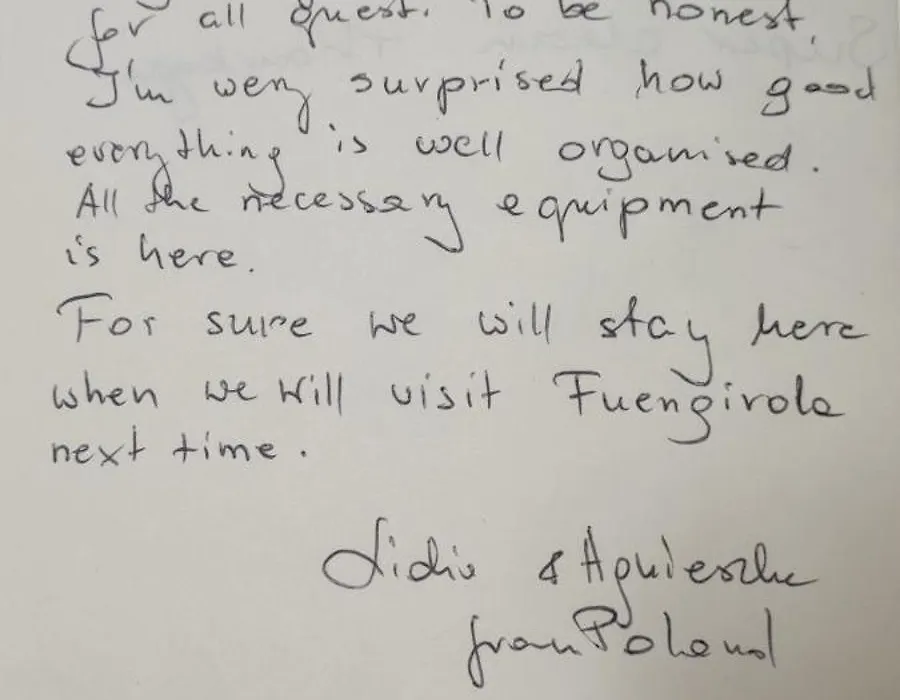 for all guest. To be honest,
I'm wery surprised how good
everything is well organised.
All the necessary equipment
is here.
For sure we will stay here
when we will visit Fuengirola
next time.
Lidia & Agnieszka
from Poland